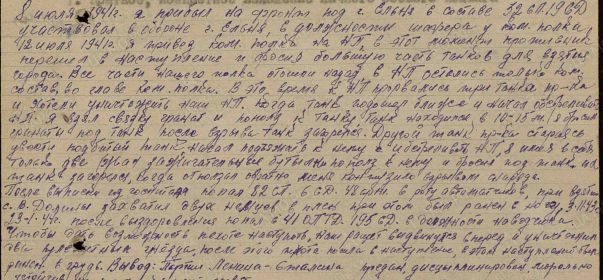 8 июля 1941г. я прибыл на фронт под г. Ельня в составе
участвовал в обороне г. Ельня, в должности шофера у ком. полка.
12 июля 1941г. я привез ком. полка на НП, в этот момент противник
перешел в наступление и бросил большую часть танков для взятия
города. Все части нашего полка отошли назад, в НП остались только ком.
состав, во главе ком. полка. В это время к НП прорвались три танка пр-ка
и хотели уничтожить наш НП. Когда танк подошел ближе и начал обстреливать
НП. Я взял связку гранат и пополз к танку, танк находился в 10-15 м. я бросил
гранаты под танк после взрыва танк загорелся. Другой танк пр-ка стараясь
увести подбитый танк начал подъезжать к нему и обстреливать НП, я имея в
только две зажигательные бутылки пополз к нему и бросил под танк
танк загорелся, когда отползал обратно меня контузило взрывом снаряда.
После выписки из госпиталя попал 82 СП. 6 СД. в роту автоматчиков, при взятии
с. В. захватил двух немцев в плен при этом был ранен в ногу,
23-1-44г. после выздоровления попал в 41 195 СД. в должности наводчика.
Чтобы дать возможность пехоте наступать, наш расчет выдвинулся вперед и уничтожил
два пулеметных гнезда, после этого пехота пошла в наступление, в этом наступлении был
ранен в грудь. Вывод: Партии Ленина-Сталина предан, дисциплинирован, морально
устойчив